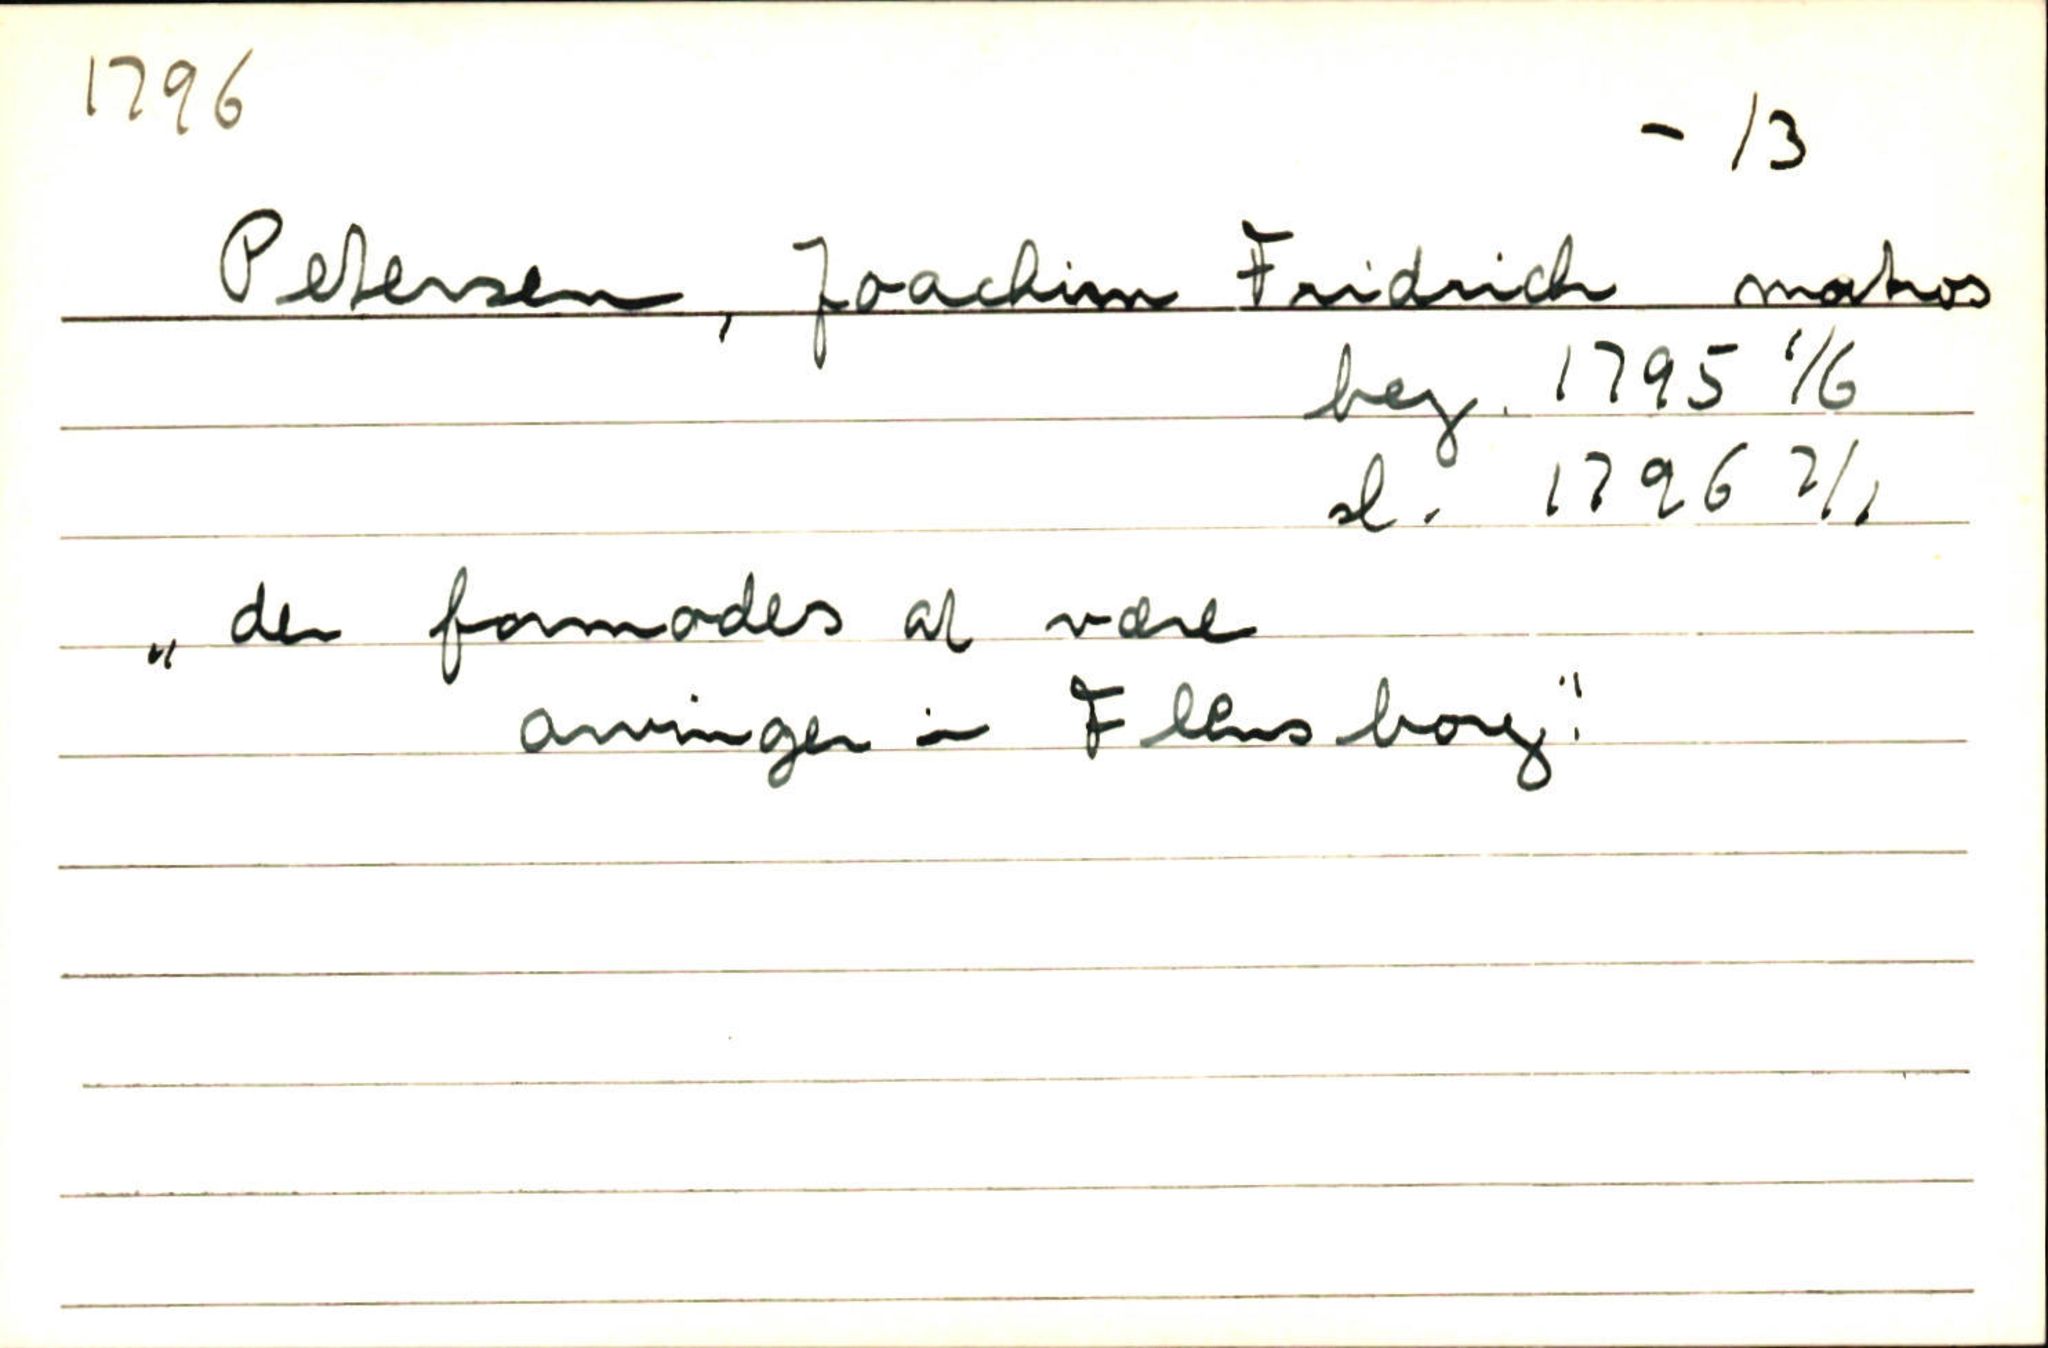 1796
- 13
Petersen, Joachim Fridrich matros
beg. 1795 1/6
sl. 1796 7/1
„ der formodes at være
arvinger i Flensborg"